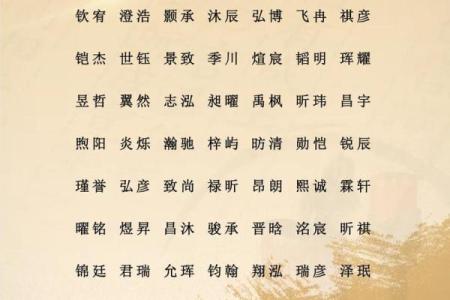 钦宥 澄浩 颢承 沐辰 弘博 飞冉 祺彦
铠杰 世钰 景致 季川 煊宸 韬明 珲耀
昱哲 翼然 志泓 昶曜 禹枫 昕玮 昌宇
煦阳 炎烁 瀚驰 梓屿 昉清 勋恺 锐辰
瑾誉 弘彦 致尚 禄昕 昂朗 熙诚 霖轩
曜铭 煜昇 昌沐 骏承 晋晗 洺宸 昕祺
锦廷 君瑞 允珲 钧翰 翔泓 瑞彦 泽珉